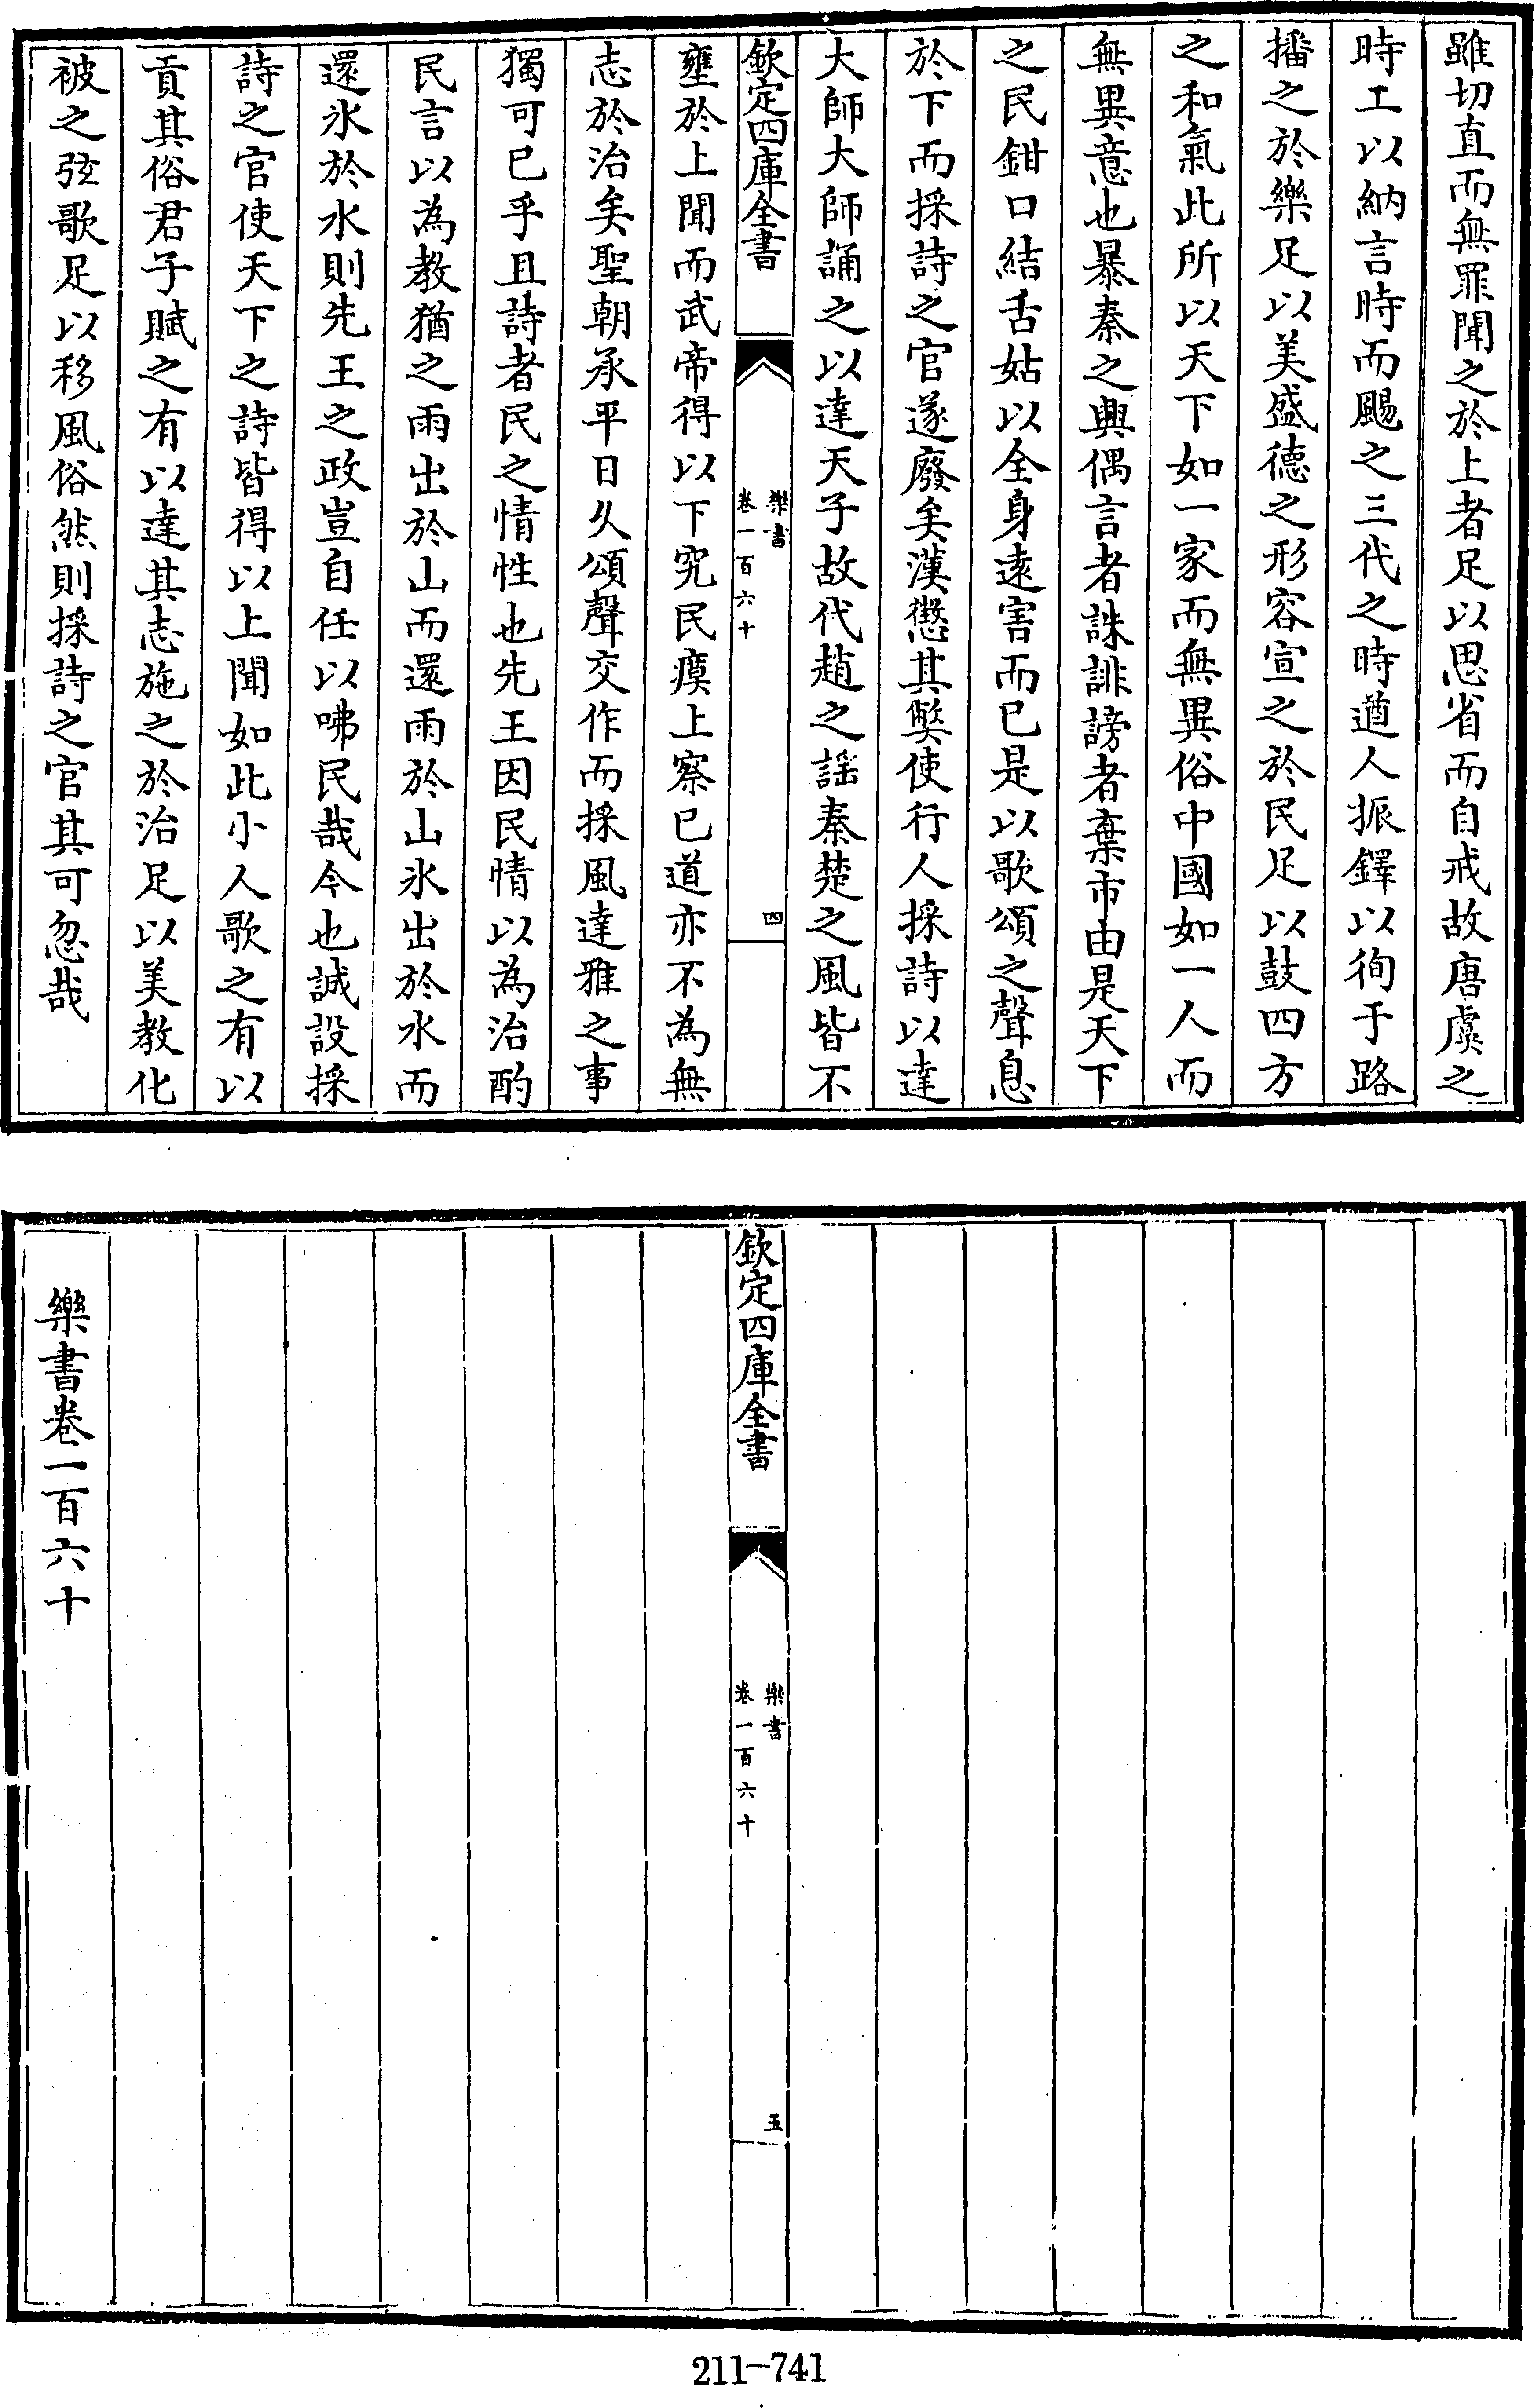 雖切直而無罪聞之於上者足以思省而自戒故唐虞之
時工以納言時而颺之三代之時遒人振鐸以徇于路
播之於樂足以美盛德之形容宣之於民足以鼓四方
之和氣此所以天下如一家而無異俗中國如一人而
無異意也暴秦之興偶言者誅誹謗者棄市由是天下
之民鉗口結舌姑以全身遠害而已是以歌頌之聲息
於下而採詩之官遂廢矣漢懲其弊使行人採詩以達
大師大師誦之以達天子故代趙之謡秦楚之風皆不
欽定四庫全書
樂書
卷一百六十
四
壅於上聞而武帝得以下究民瘼上察已道亦不為無
志於治矣聖朝承平日久頌聲交作而採風達雅之事
獨可已乎且詩者民之情性也先王因民情以為治酌
民言以為教猶之雨出於山而還雨於山氷出於水而
還氷於水則先王之政豈自任以咈民哉今也誠設採
詩之官使天下之詩皆得以上聞如此小人歌之有以
貢其俗君子賦之有以達其志施之於治足以美教化
被之弦歌足以移風俗然則採詩之官其可忽哉
欽定四庫全書
樂書
卷一百六十
五
樂書卷一百六十
211-741